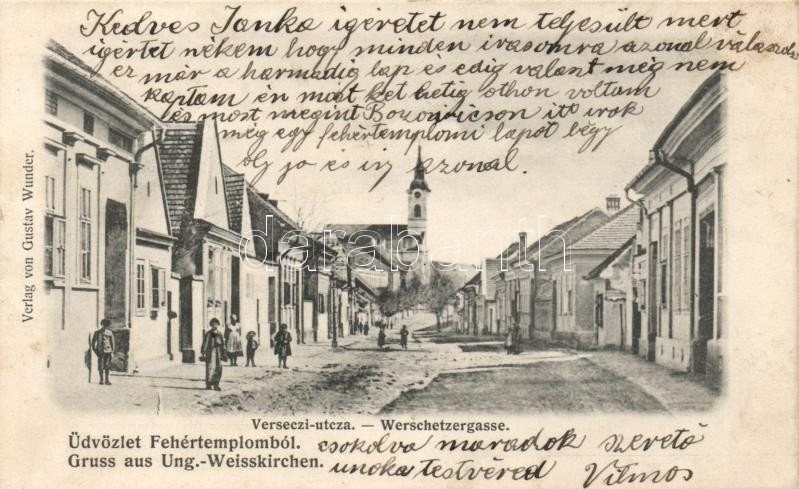 Kedves Janka igéretet nem teljesült mert
igértet nékem hogy minden irasomra azonal válaszol
ez már a harmadig lap és edig valast még nem
kaptam én miat ket hetig othon voltam
és most megint itt irok
még egy fehértemplomi lapot légy
oly jo és irj azonal.
Verlag von Gustav Wunder.
darabanth
Verseczi-utcza. — Werschetzergasse.
Üdvözlet Fehértemplomból.
Gruss aus Ung.-Weisskirchen.
csokolva maradok szerető
unoka testvéred Vilmos